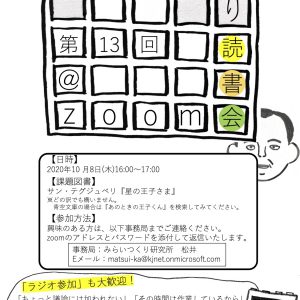 り
第13回読
@書
zoom会
【日時】
2020年10月8日(木)16:00~17:00
【課題図書】
サン・テグジュペリ『星の王子さま』
※どの訳でも構いません。
青空文庫の場合は『あのときの王子くん』を検索してみてください。
【参加方法】
興味のある方は、以下事務局までご連絡ください。
zoomのアドレスとパスワードを添付して返信いたします。
事務局:みらいつくり研究所 松井
Eメール:matsui-ka@kjnet.onmicrosoft.com
「ラジオ参加」も大歓迎!
「ちょっと議論には加われない」「その時間は作業しているから」